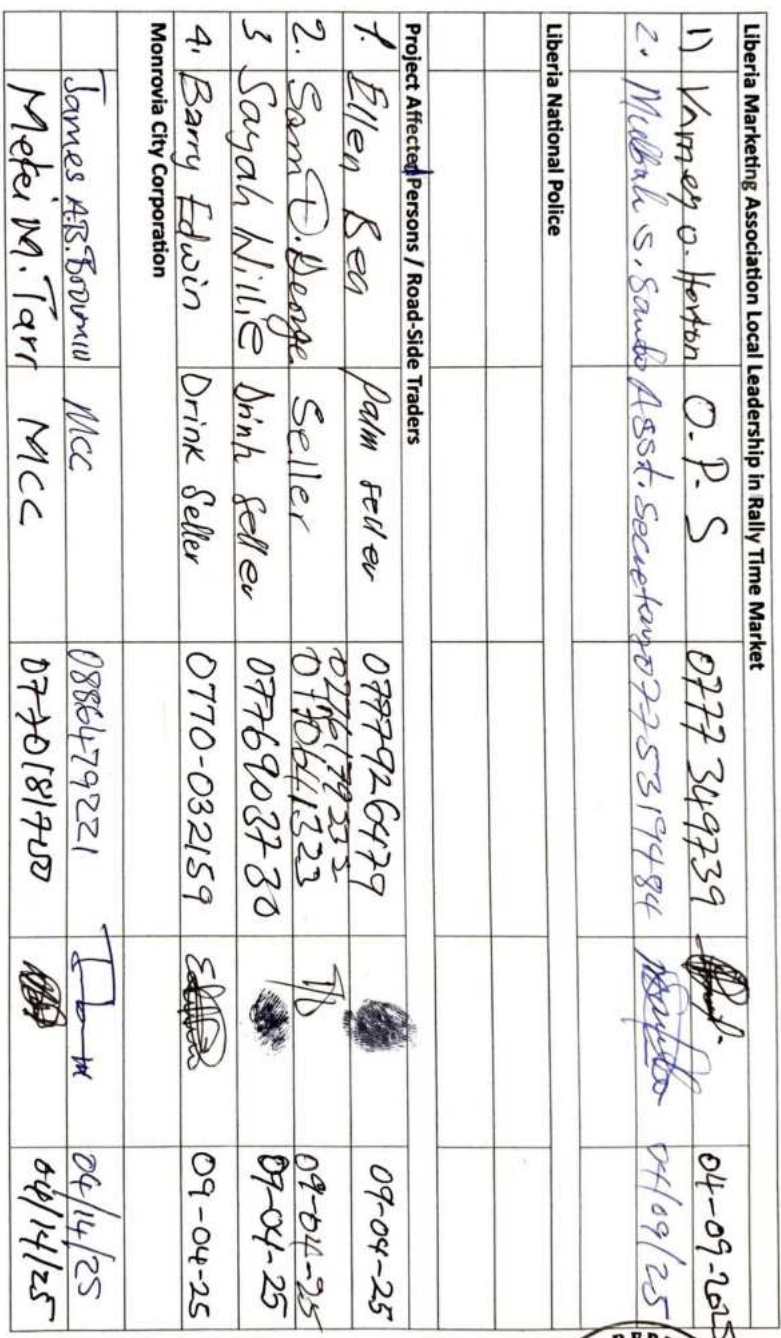 Liberia Marketing Association Local Leadership in Rally Time Market
1) Varney O. Horton O.P.S 0777349739 04-09-2025
2. Mulbah S. Asst. Secretary 0775319484 04/09/25
Liberia National Police
Project Affected Persons / Road-Side Traders
1. Ellen Bea Palm seller 0777926479 09-04-25
2. Sam D. George Seller 09-04-25
3 Sayah Willie Drink Seller 0776903730 09-04-25
4. Barry Edwin Drink Seller 0770-032159 09-04-25
Monrovia City Corporation
James A.B. MCC 0886479221 04/14/25
Metei M. Tarr MCC 04/14/25